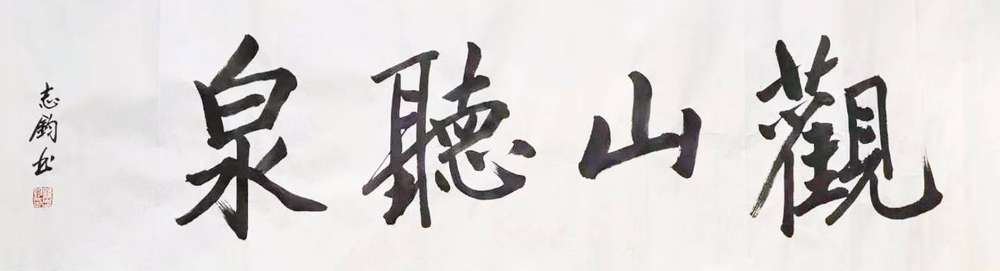 觀山聽泉
志鈞書